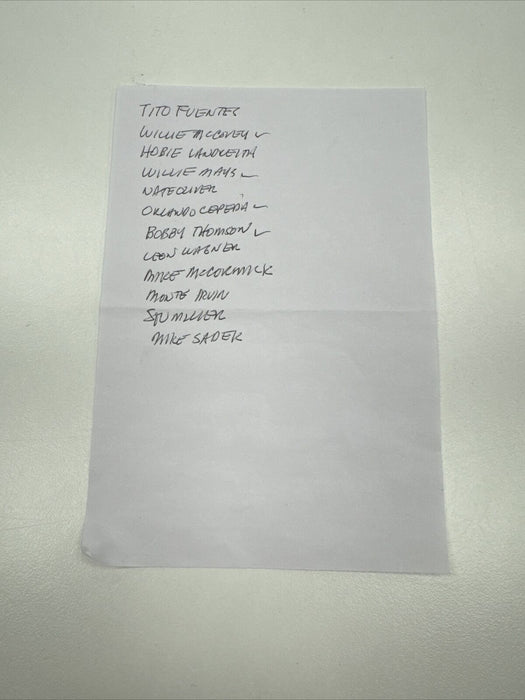 TITO FUENTES
WILLIE McCOVEY ✓
HOBIE LANDRITH
WILLIE MAYS ✓
NATE OLIVER
ORLANDO CEPEDA ✓
BOBBY THOMSON ✓
LEON WAGNER
MIKE McCORMICK
MONTE IRVIN
STU MILLER
MIKE SADEK